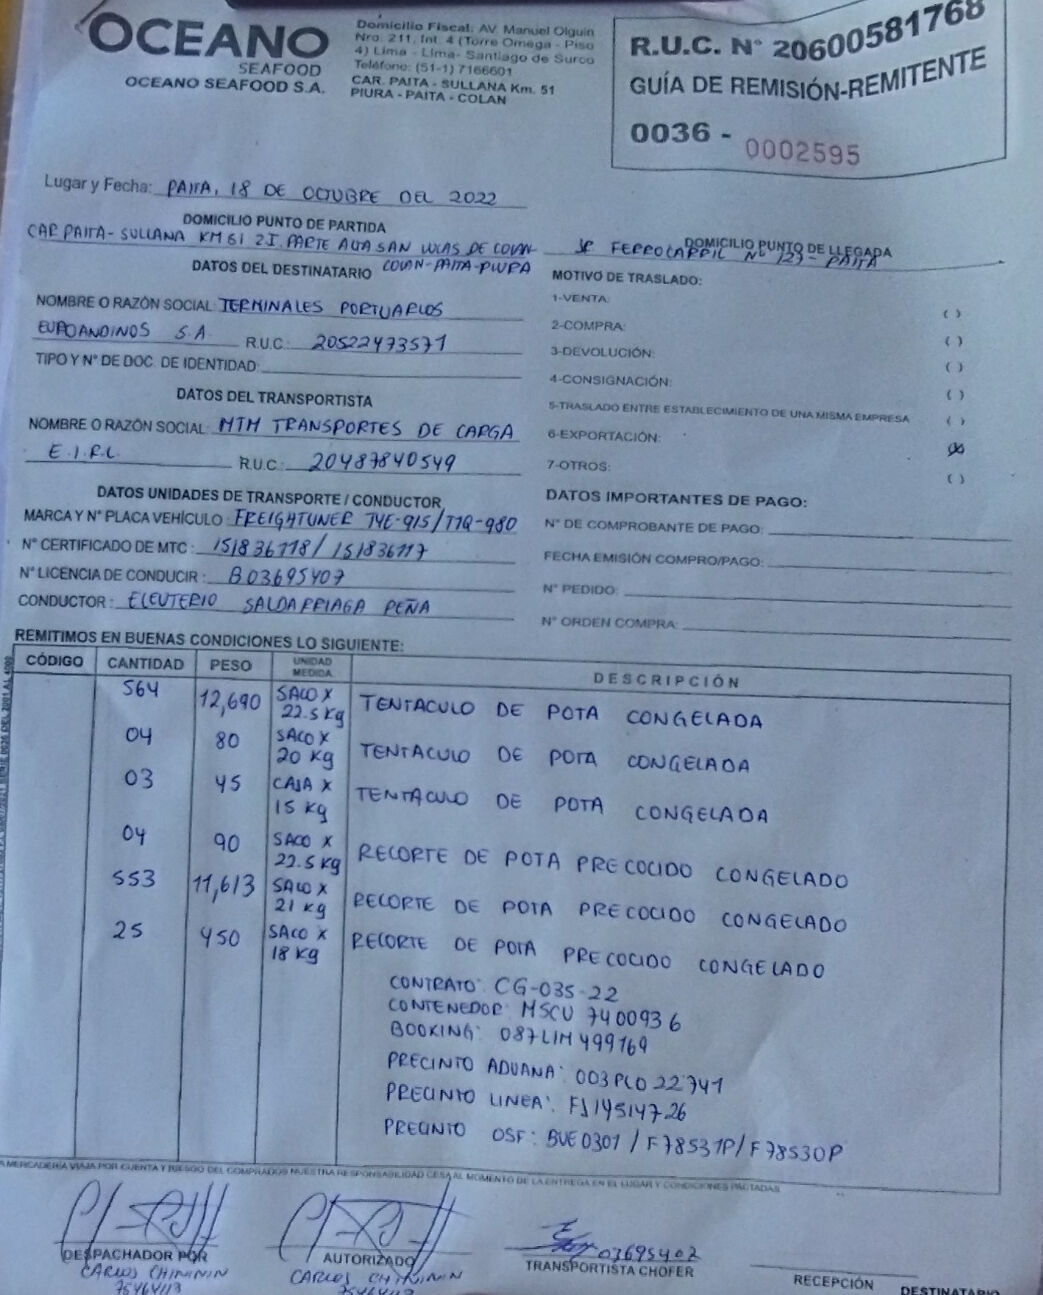 OCEANO
SEAFOOD
OCEANO SEAFOOD S.A.
Domicilio Fiscal: AV. Manuel Olguin
Nro. 211, Int. 4 (Torre Omega - Piso
4) Lima - Lima- Santiago de Surco
Teléfono: (51-1) 7166601
CAR. PAITA - SULLANA Km. 51
PIURA - PAITA - COLAN
R.U.C. N° 20600581768
GUÍA DE REMISIÓN-REMITENTE
0036 - 0002595
Lugar y Fecha: PAITA, 18 DE OCTUBRE DEL 2022
DOMICILIO PUNTO DE PARTIDA
CAR PAITA- SULLANA KM 61 ZI. PARTE ALTA SAN LUCAS DE COLAN-
COLAN-PAITA-PIURA
DOMICILIO PUNTO DE LLEGADA
JR FERROCARRIL N° 127- PAITA
DATOS DEL DESTINATARIO
NOMBRE O RAZÓN SOCIAL: TERMINALES PORTUARIOS
EUROANDINOS S.A. R.U.C.: 20522473571
TIPO Y N° DE DOC. DE IDENTIDAD:
DATOS DEL TRANSPORTISTA
NOMBRE O RAZÓN SOCIAL: MTM TRANSPORTES DE CARGA
E.I.R.L. R.U.C.: 20487840549
DATOS UNIDADES DE TRANSPORTE / CONDUCTOR
MARCA Y N° PLACA VEHÍCULO: FREIGHTLINER TYE-915/T1Q-980
N° CERTIFICADO DE MTC: 151836118/151836117
N° LICENCIA DE CONDUCIR: B03695407
CONDUCTOR: ELEUTERIO SALDARRIAGA PEÑA
MOTIVO DE TRASLADO:
1-VENTA: ( )
2-COMPRA: ( )
3-DEVOLUCIÓN: ( )
4-CONSIGNACIÓN: ( )
5-TRASLADO ENTRE ESTABLECIMIENTO DE UNA MISMA EMPRESA ( )
6-EXPORTACIÓN: (X)
7-OTROS: ( )
DATOS IMPORTANTES DE PAGO:
N° DE COMPROBANTE DE PAGO:
FECHA EMISIÓN COMPRO/PAGO:
N° PEDIDO:
N° ORDEN COMPRA:
REMITIMOS EN BUENAS CONDICIONES LO SIGUIENTE:
CÓDIGO CANTIDAD PESO UNIDAD MEDIDA DESCRIPCIÓN
564 12,690 SACO X 22.5 Kg TENTACULO DE POTA CONGELADA
04 80 SACO X 20 Kg TENTACULO DE POTA CONGELADA
03 45 CAJA X 15 Kg TENTACULO DE POTA CONGELADA
04 90 SACO X 22.5 Kg RECORTE DE POTA PRECOCIDO CONGELADO
553 11,613 SACO X 21 Kg RECORTE DE POTA PRECOCIDO CONGELADO
25 450 SACO X 18 Kg RECORTE DE POTA PRECOCIDO CONGELADO
CONTRATO: CG-035-22
CONTENEDOR: MSCU 740093 6
BOOKING: 087LIM499169
PRECINTO ADUANA: 003PLO22741
PRECINTO LINEA: FJ14514726
PRECINTO OSF: BUE0301 / F78531P/ F78530P
LA MERCADERÍA VIAJA POR CUENTA Y RIESGO DEL COMPRADOS NUESTRA RESPONSABILIDAD CESA AL MOMENTO DE LA ENTREGA EN EL LUGAR Y CONDICIONES PACTADAS
DESPACHADOR POR
CARLOS CHININIM
75464113
AUTORIZADO
CARLOS CHININIM
75464113
03695407
TRANSPORTISTA CHOFER
RECEPCIÓN
DESTINATARIO